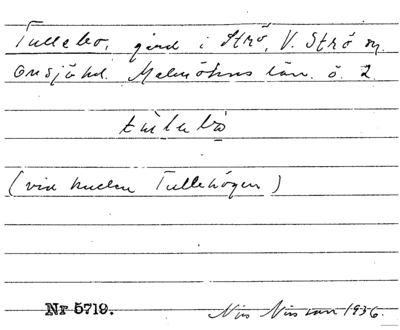 Tullebo, gård i Strö, V. Strö sn,
Onsjö hd. Malmöhus län. ö. 2.
(vid kullen Tullehögen)
Nr 5719. Nils Nilsson 1936.